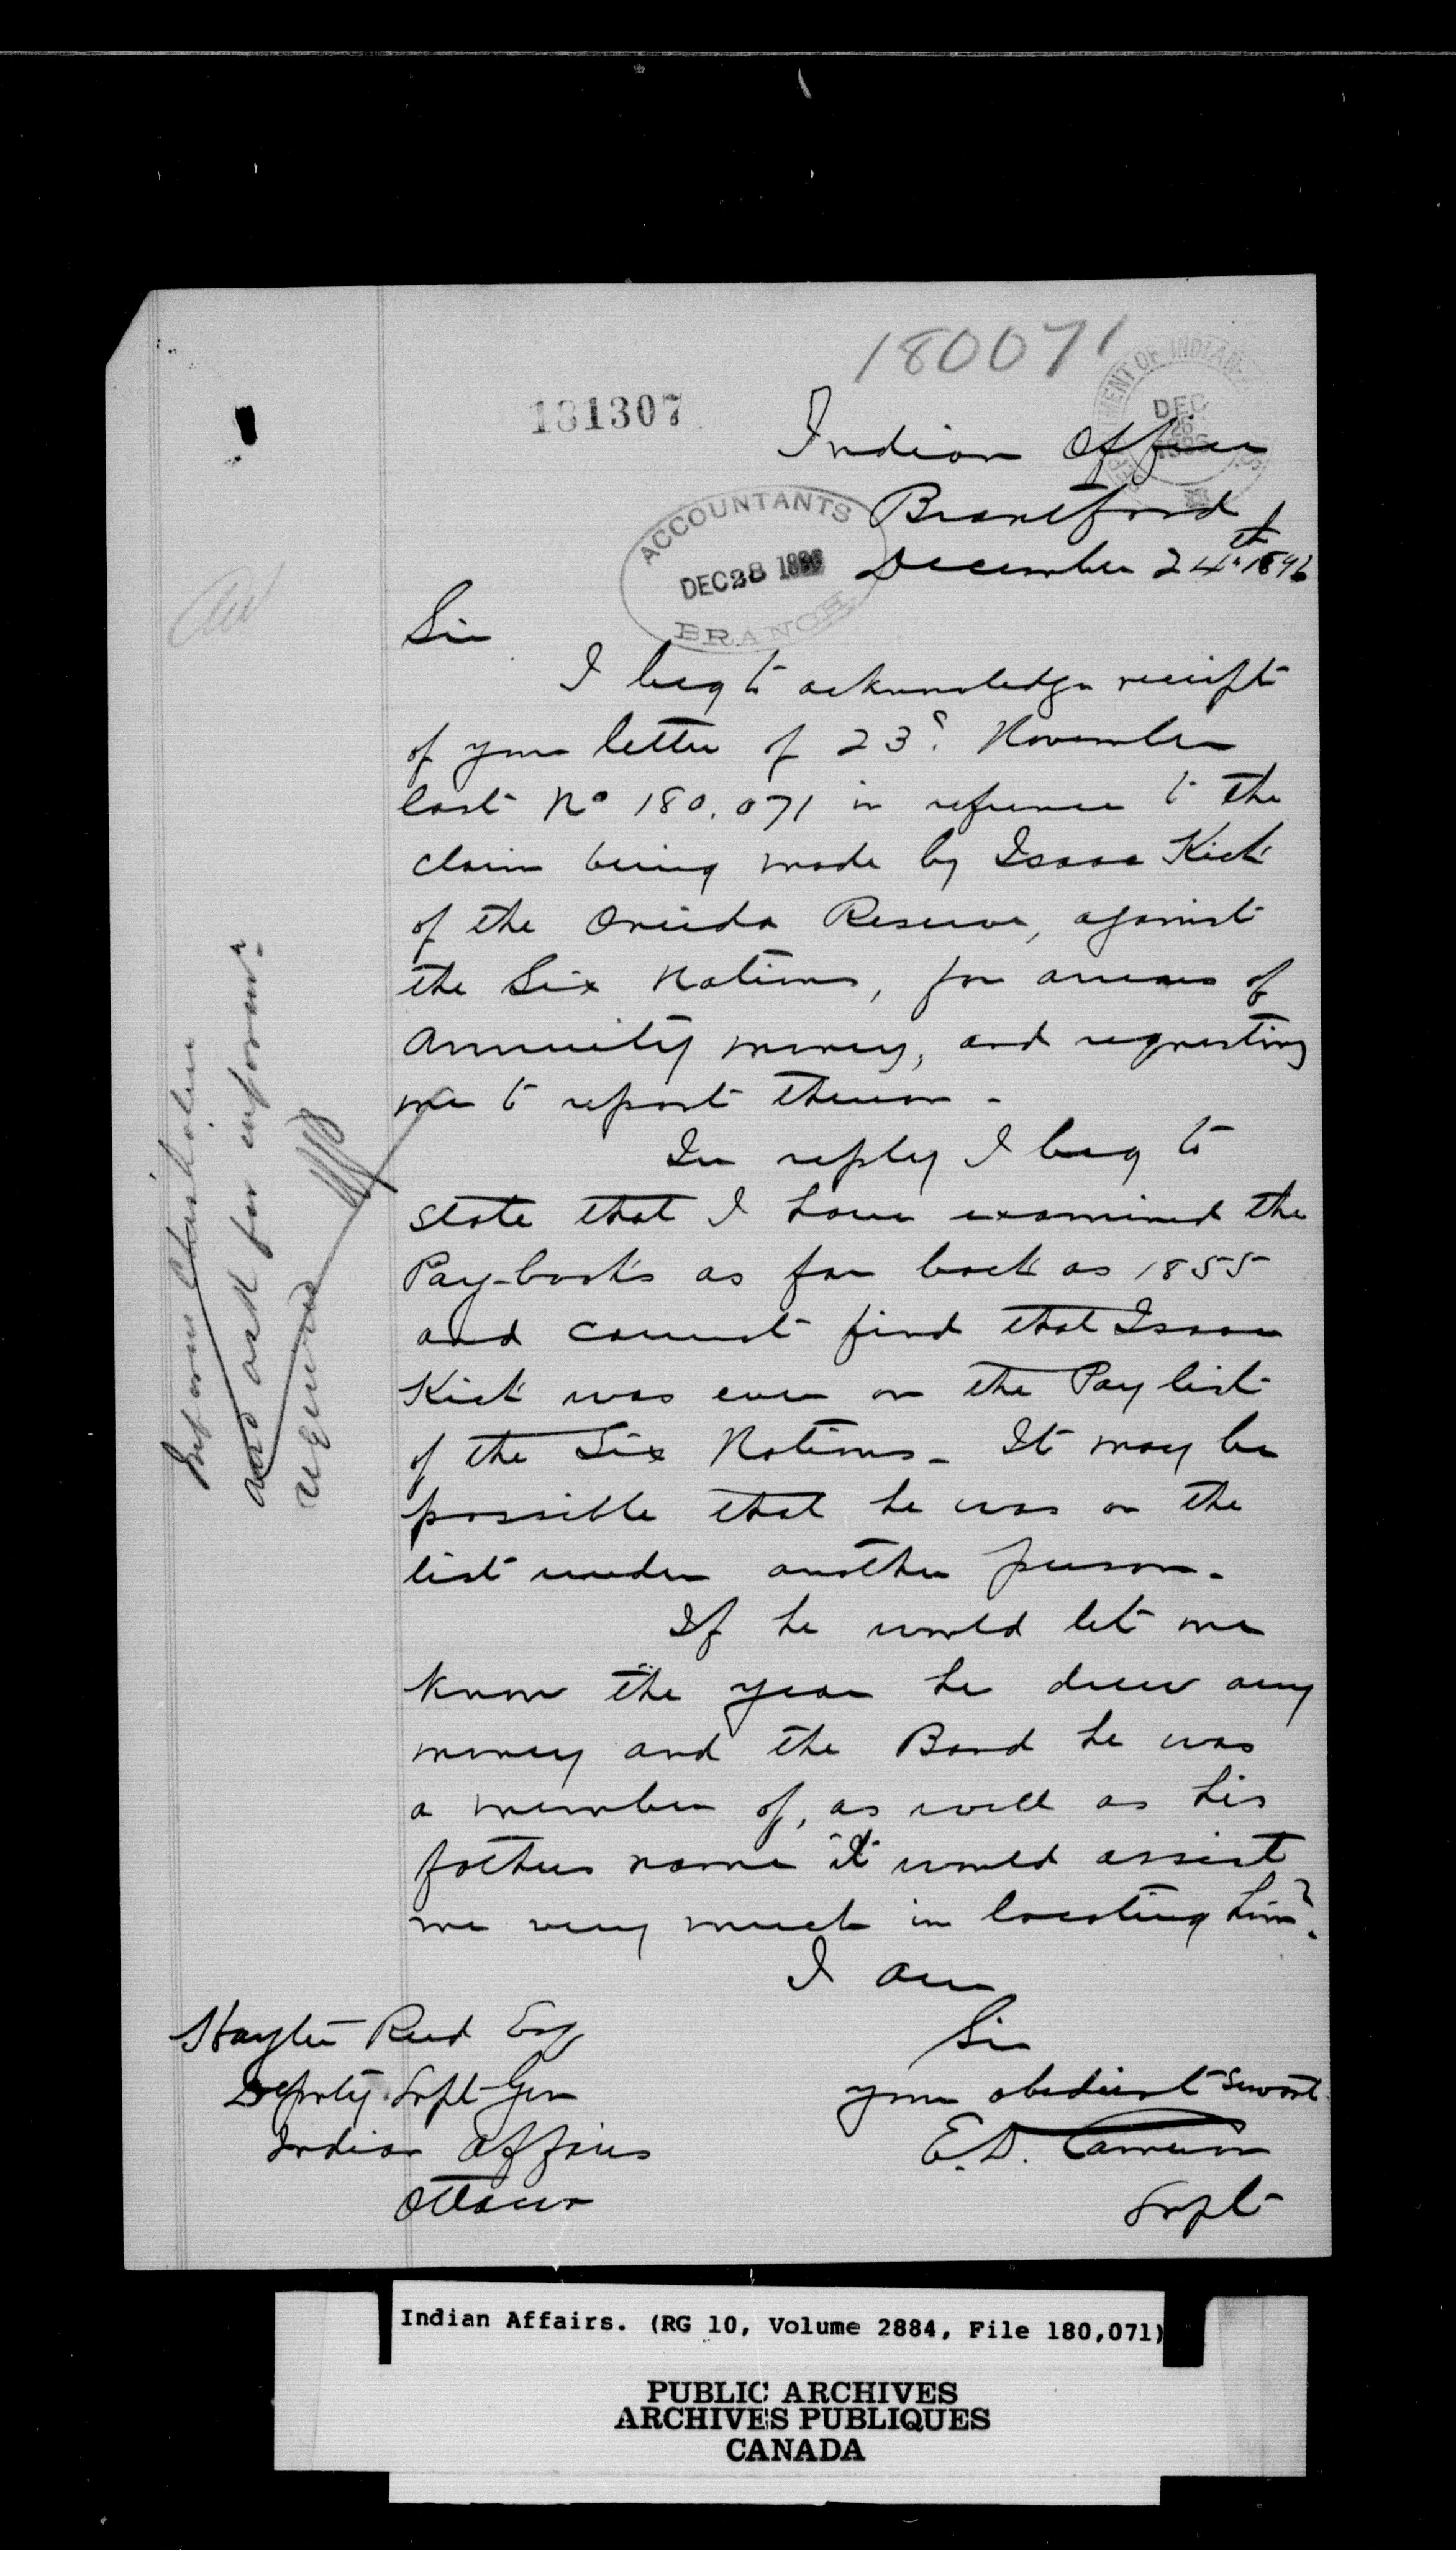 180071
181307
DEPARTMENT OF INDIAN
DEC
26
1896
Indian Office
Brantford
December 24th 1896
ACCOUNTANTS
DEC 28 1896
BRANCH
Sir
I beg to acknowledge receipt
of your letter of 23d. November
last No 180,071 in reference to the
claim being made by Isaac Kick
of the Oneida Reserve, against
the Six Nations, for arrears of
Annuity money, and requesting
me to report thereon -
In reply I beg to
state that I have examined the
Pay-books as far back as 1855
and cannot find that Isaac
Kick was ever on the Pay list
of the Six Nations - It may be
possible that he was on the
list under another person -
If he would let me
know the year he drew any
money and the Band he was
a member of, as well as his
fathers name it would assist
me very much in locating him.
I am
Sir
your obedient Servant
E.D. Cameron
Supt
Hayter Reed Esq
Deputy Supt Gen
Indian Affairs
Ottawa
Inform Chisholm
and ask for informn
required
Indian Affairs. (RG 10, Volume 2884, File 180,071)
PUBLIC ARCHIVES
ARCHIVES PUBLIQUES
CANADA